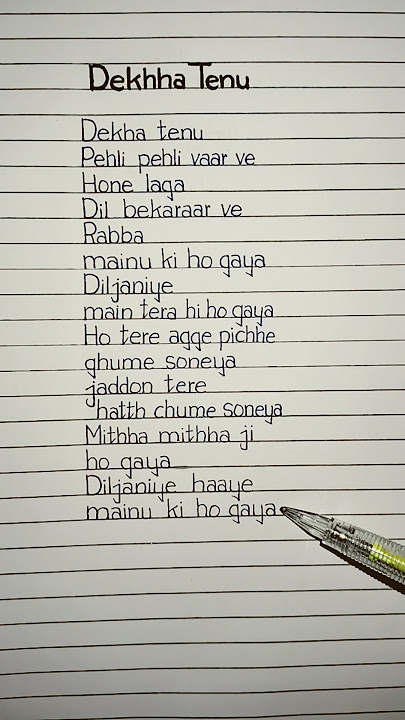 Dekhha Tenu
Dekha tenu
Pehli pehli vaar ve
Hone laga
Dil bekaraar ve
Rabba
mainu ki ho gaya
Diljaniye
main tera hi ho gaya
Ho tere agge pichhe
ghume soneya
jaddon tere
hatth chume soneya
Mithha mithha ji
ho gaya
Diljaniye haaye
mainu ki ho gaya